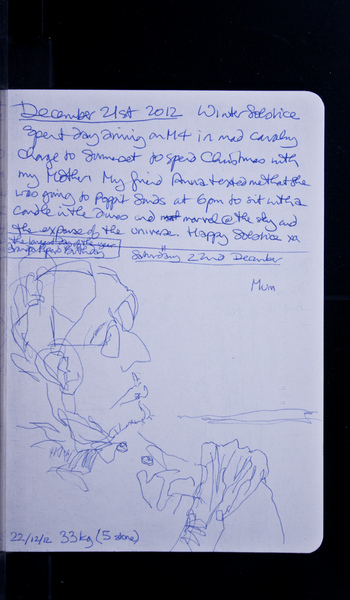 December 21st 2012 Winter Solstice
Spent Day driving on M4 in mad cavalry
charge to Somerset to spend Christmas with
my Mother. My friend Anna texted me that she
was going to Poppit Sands at 6pm to sit with a
candle in the dunes and marvel @ the sky and
the expanse of the universe. Happy Solstice xx
the longest day of the year
Birthday
Saturday 22nd December
Mum
22/12/12 33kg (5 stone)